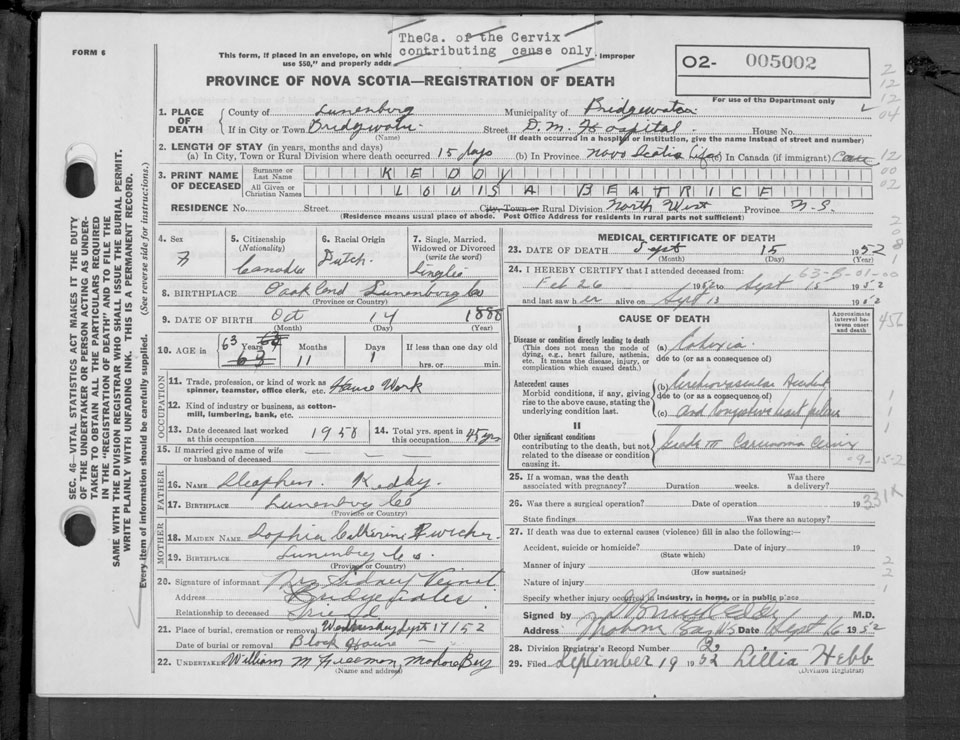 FORM 6
TheCa. of the Cervix
contributing cause only.
This form, if placed in an envelope, on whic improper
use $50," and properly addr
PROVINCE OF NOVA SCOTIA—REGISTRATION OF DEATH
O2- 005002
For use of the Department only
1. PLACE OF DEATH { County of Lunenburg Municipality of Bridgewater
If in City or Town Bridgewater Street D. M. Hospital House No.
(Name) (If death occurred in a hospital or institution, give the name instead of street and number)
2. LENGTH OF STAY (in years, months and days)
(a) In City, Town or Rural Division where death occurred 15 days (b) In Province Nova Scotia Life (c) In Canada (if immigrant)
3. PRINT NAME OF DECEASED Surname or Last Name KEDDY
All Given or Christian Names LOUISA BEATRICE
RESIDENCE No. Street City, Town or Rural Division North West Province N.S.
(Residence means usual place of abode. Post Office Address for residents in rural parts not sufficient)
4. Sex F
5. Citizenship (Nationality) Canadian
6. Racial Origin Dutch
7. Single, Married, Widowed or Divorced (write the word) Single
8. BIRTHPLACE Oakland Lunenburg Co
(Province or Country)
9. DATE OF BIRTH Oct 14 1888
(Month) (Day) (Year)
10. AGE in { 63 Years 63 Months 11 Days 1 If less than one day old hrs. or min.
OCCUPATION
11. Trade, profession, or kind of work as spinner, teamster, office clerk, etc. House Work
12. Kind of industry or business, as cotton-mill, lumbering, bank, etc.
13. Date deceased last worked at this occupation 1950
14. Total yrs. spent in this occupation 45 yrs
15. If married give name of wife or husband of deceased — — —
FATHER
16. NAME Stephen Keddy
17. BIRTHPLACE Lunenburg Co
(Province or Country)
MOTHER
18. MAIDEN NAME Sophia Catherine
19. BIRTHPLACE Lunenburg Co.
(Province or Country)
20. Signature of informant Mrs Sidney Veinot
Address Bridgewater
Relationship to deceased Friend
21. Place of burial, cremation or removal Wednesday Sept 17 / 52
Date of burial or removal Block House
22. UNDERTAKER William M. Freeman, Mahone Bay
(Name and address)
MEDICAL CERTIFICATE OF DEATH
23. DATE OF DEATH Sept 15 1952
(Month) (Day)
24. I HEREBY CERTIFY that I attended deceased from:
63-5-01-00
Feb 26 1952 to Sept 15 1952
and last saw her alive on Sept 13 1952
CAUSE OF DEATH
Approximate interval between onset and death
I
Disease or condition directly leading to death
(This does not mean the mode of dying, e.g., heart failure, asthenia, etc. It means the disease, injury, or complication which caused death.)
(a) Cahexia
due to (or as a consequence of)
Antecedent causes
Morbid conditions, if any, giving rise to the above cause, stating the underlying condition last.
(b) Cerebrovascular Accident
due to (or as a consequence of)
(c) and Congestive heart failure
II
Other significant conditions
contributing to the death, but not related to the disease or condition causing it.
Grade III Carcinoma Cervix
-9-15-2
25. If a woman, was the death associated with pregnancy? Duration weeks. Was there a delivery?
26. Was there a surgical operation? Date of operation 19
331X
State findings Was there an autopsy?
27. If death was due to external causes (violence) fill in also the following:—
Accident, suicide or homicide? Date of injury 19
(State which)
Manner of injury
(How sustained)
Nature of injury
Specify whether injury occurred in industry, in home, or in public place
Signed by M.D.
Address Mahone Bay NS Date Sept 16 1952
28. Division Registrar's Record Number
29. Filed September 19 1952 Lillia Hebb
(Division Registrar)
SEC. 46—VITAL STATISTICS ACT MAKES IT THE DUTY
OF THE UNDERTAKER OR PERSON ACTING AS UNDER-
TAKER TO OBTAIN ALL THE PARTICULARS REQUIRED
IN THE "REGISTRATION OF DEATH" AND TO FILE THE
SAME WITH THE DIVISION REGISTRAR WHO SHALL ISSUE THE BURIAL PERMIT.
WRITE PLAINLY WITH UNFADING INK. THIS IS A PERMANENT RECORD.
Every item of information should be carefully supplied. (See reverse side for instructions.)